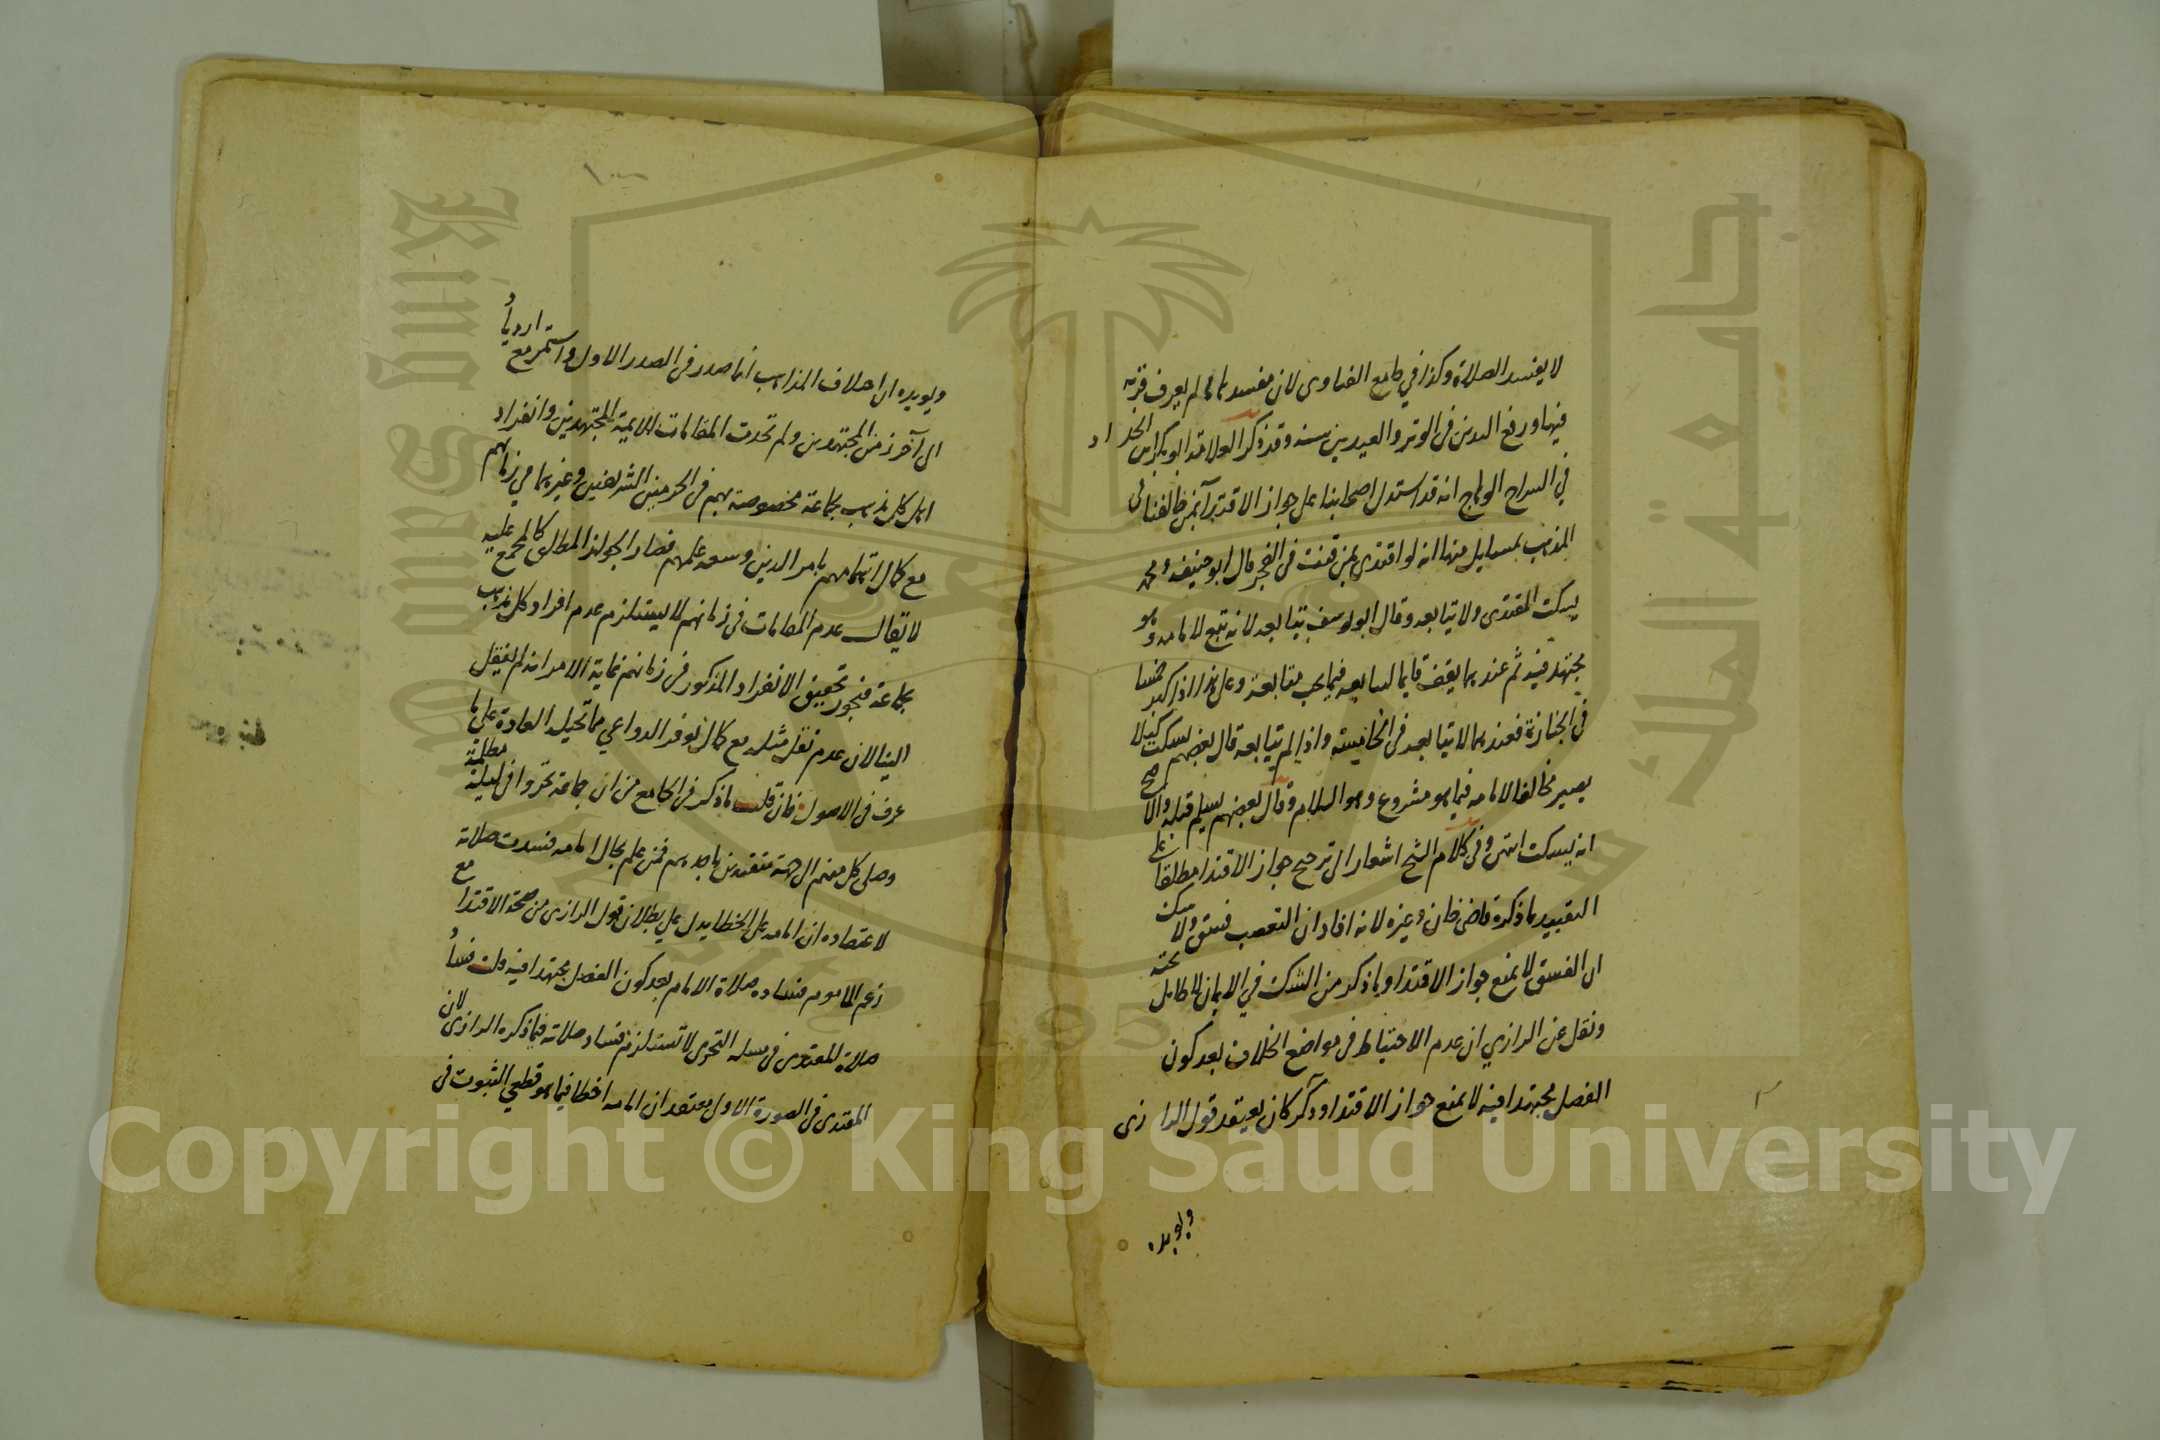 لا يفسد الصلاة وكذا في جامع الفتاوى لان مفسد بما لم يعرف قربه
فيها ورفع اليدين في الوتر والعيدين سنة وقد ذكر العلامة ابو بكر بن الحداد
في السراج الوهاج انه قد استدل اصحابنا على جواز الاقتداء بمن خالفنا في
المذهب بمسايل منها انه لو اقتدى بمن قنت في الفجر قال ابو حنيفة ومحمد
يسكت المقتدى ولا يتابعه وقال ابو يوسف يتابعه لانه تبع لامامه وهو
مجتهد فيه ثم عندهما يقف قايما ليتابعه فيما يجب متابعته وعلى هذا اذا كبر خمسا
في الجنازة فعندهما لا يتابعه في الخامسة واذا لم يتابعه قال بعضهم يسكت كيلا
يصير مخالفا لامامه فيما هو مشروع وهو السلام وقال بعضهم يسلم قبله والاصح
انه يسكت انتهى وفي كلام الشيخ اشعار الى ترجيح جواز الاقتدا مطلقا على
التقييد بما ذكره قاضي خان وغيره لانه افاد ان التعصب فسق ولا شك
ان الفسق لا يمنع جواز الاقتدا وما ذكر من الشك في الايمان لا طايل تحته
ونقل عن الرازي ان عدم الاحتياط في مواضع الخلاف بعد كون
الفصل مجتهدا فيه لا يمنع جواز الاقتدا وذكر كان يعتقد قول الرازى
ويويده
ويويده ان اختلاف المذاهب انما صدر في الصدر الاول واستمر مع اربابه
الى آخر زمن المجتهدين ولم تحدث المقامات للايمة المجتهدين وانفراد
اهل كل مذهب بجماعة مخصوصة بهم في الحرمين الشريفين وغيرهما في زمانهم
مع كمال اهتمامهم بامر الدين وسعة علمهم فصار الجواز المطلق كالمجمع عليه
لا يقال عدم المقامات في زمانهم لا يستلزم عدم افراد كل مذهب
بجماعة فيجوز تحقيق الانفراد المذكور في زمانهم غاية الامر انه لم ينقل
الينا لان عدم نقل مثله مع كمال توفر الدواعي مما تحيله العادة على ما
عرف في الاصول فان قلت ما ذكر في الجامع من ان جماعة تحروا في ليلة مظلمة
وصلى كل منهم الى جهة مقتدين باحدهم فمن علم بحال امامه فسدت صلاته
لاعتقاده ان امامه على الخطا يدل على بطلان قول الرازى من صحة الاقتدا مع
زعم الماموم فساد صلاة الامام بعد كون الفصل مجتهدا فيه قلت فساد
صلاة المقتدى في مسلة التحرى لا تستلزم فساد صلاته فيما ذكره الرازى لان
المقتدى في الصورة الاولى معتقد ان امامه اخطا فيما هو قطعي الثبوت في